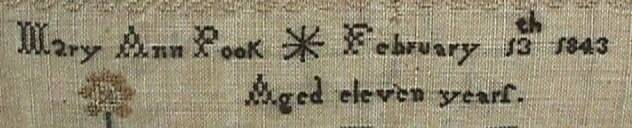 Mary Ann Pook ✳ February 13th 1843
Aged eleven years.